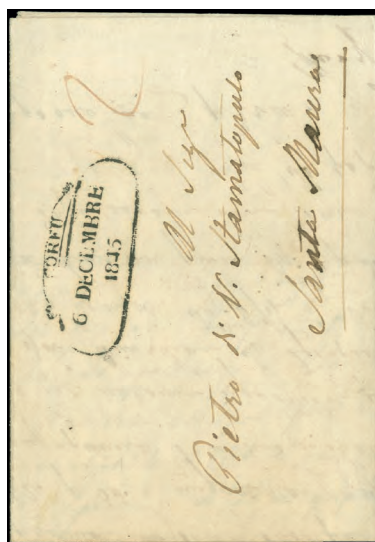 CORFU
6 DECEMBRE
1845
2
Al Sigr
Pietro di N. Stamatopulo
Santa Maura